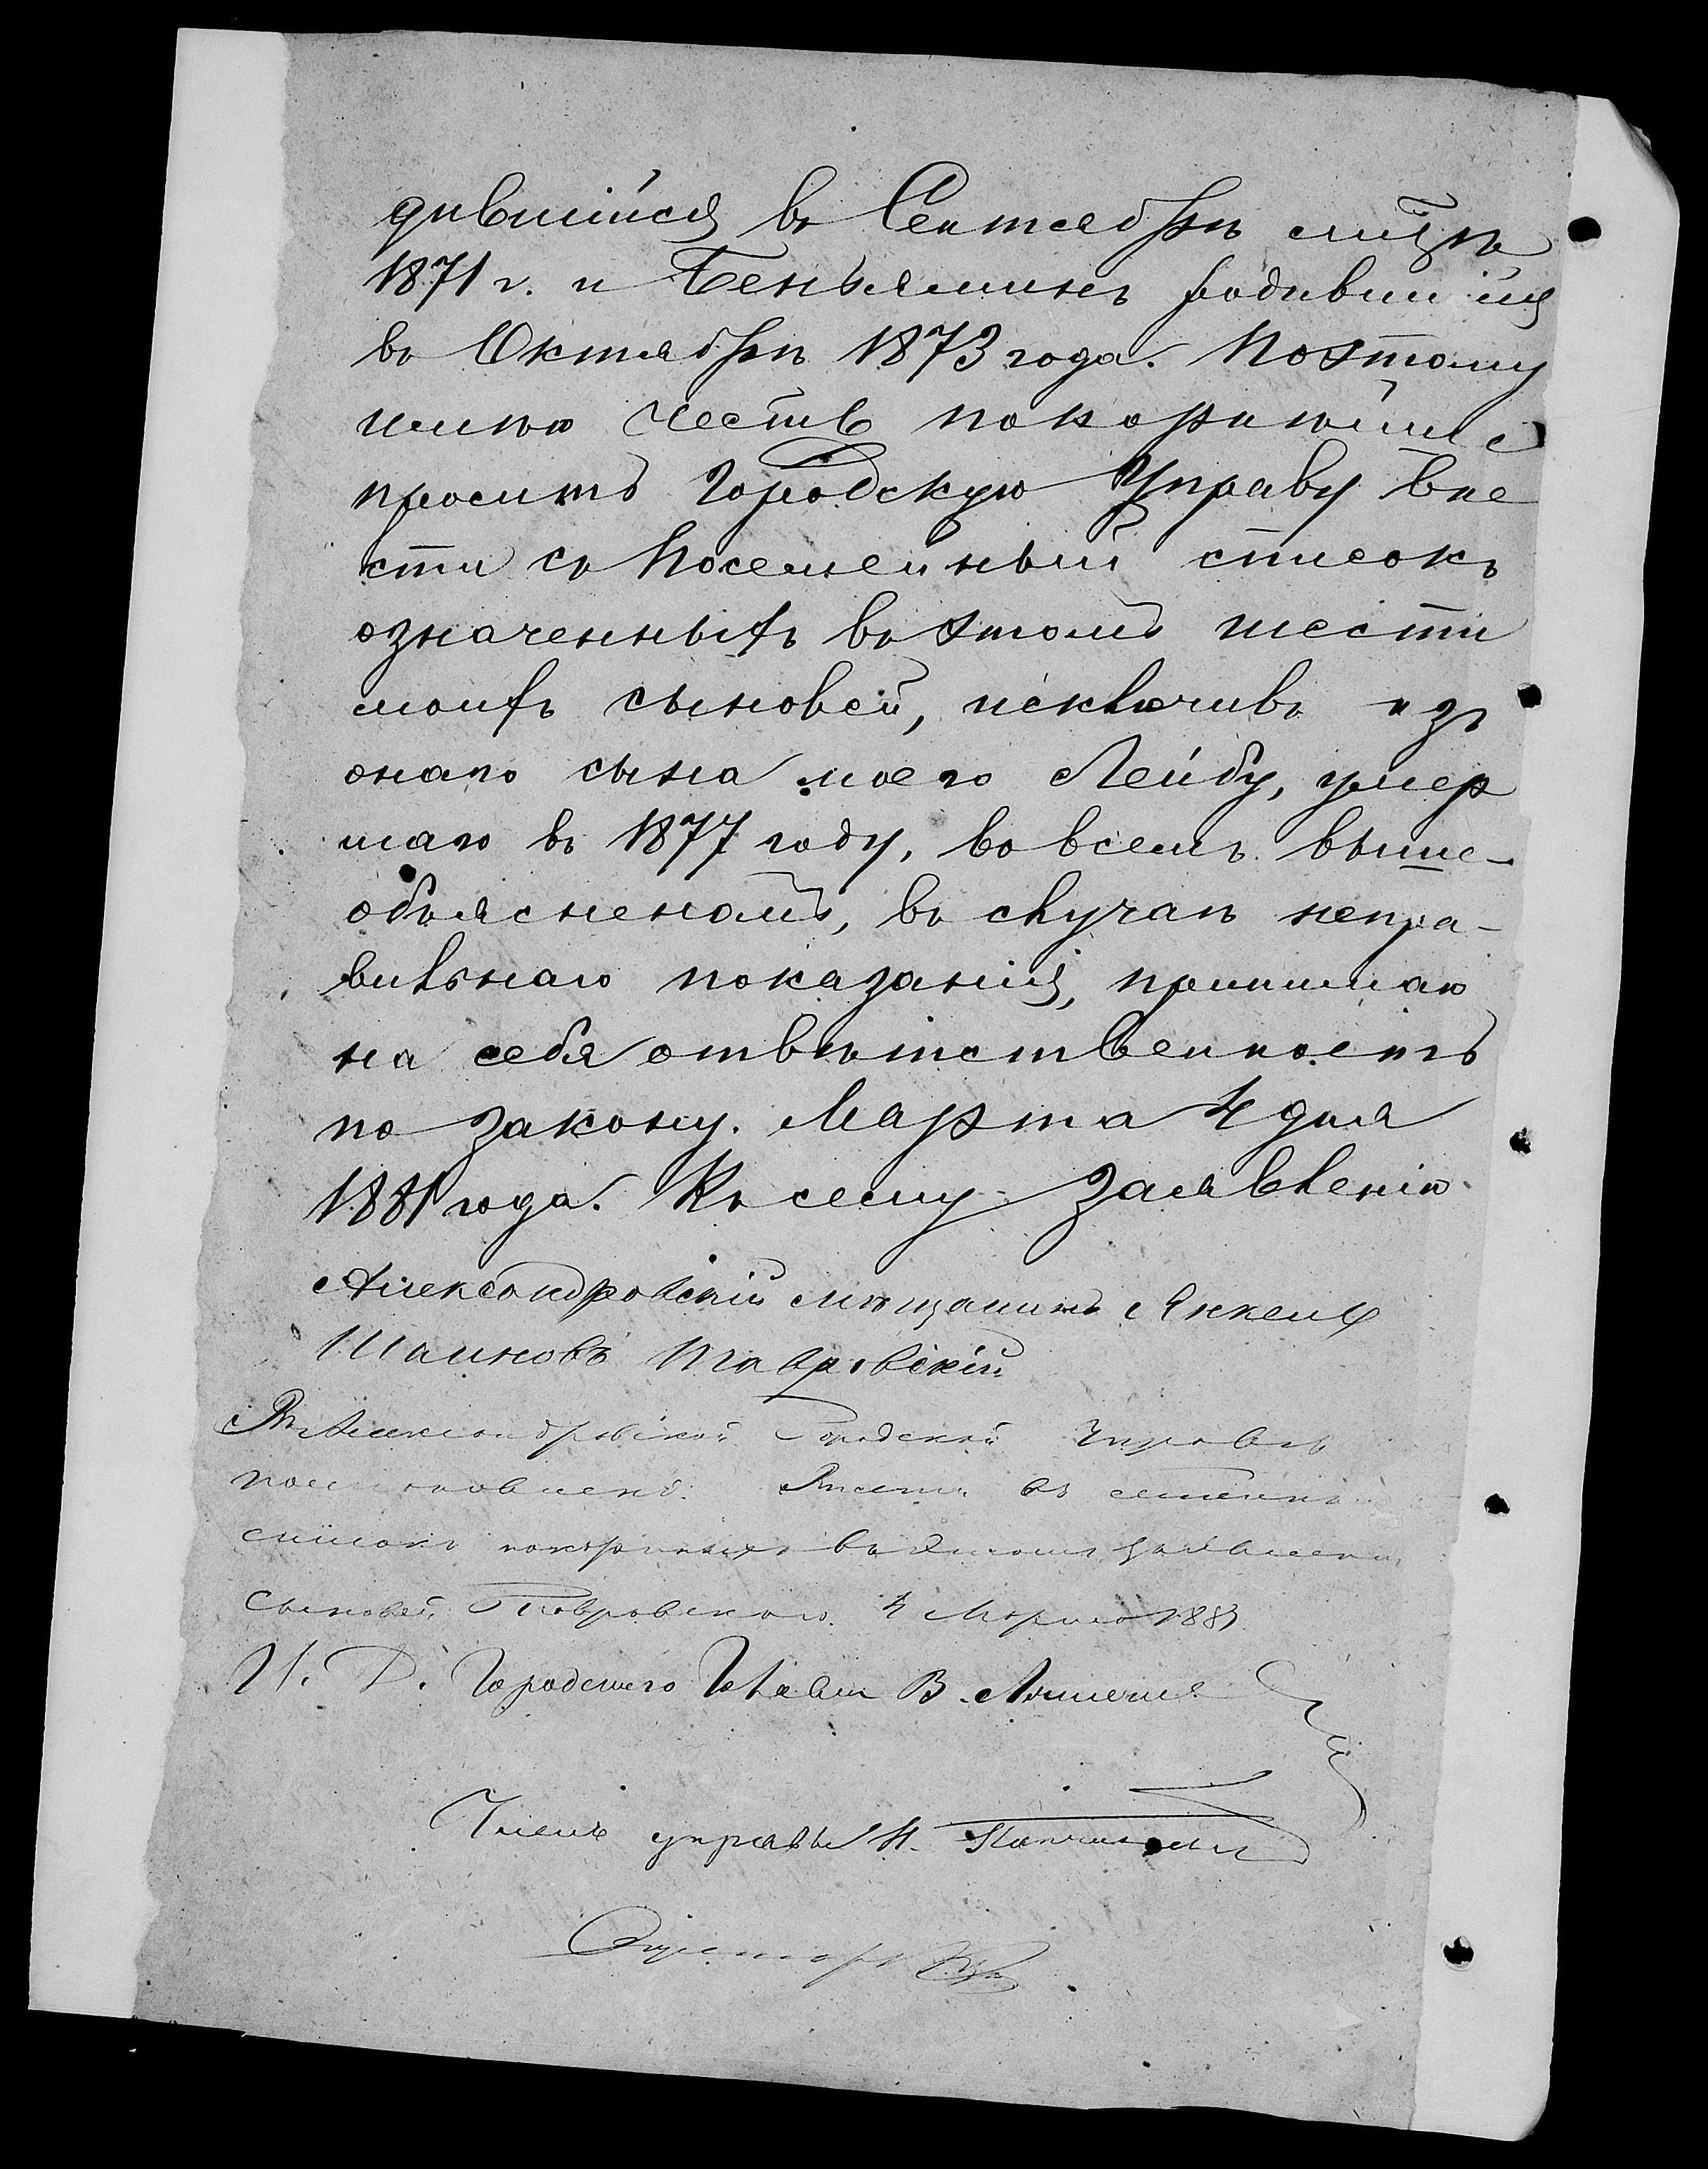 дившійся въ Сентябрѣ мѣсяцѣ
1871 г. и Беньяминъ родившійся
въ Октябрѣ 1873 года. Поэтому
имѣю честь покорнѣйше
просить Городскую Управу вне
сти въ посемейный списокъ
означенныхъ въ этомъ шести
моихъ сыновей, исключивъ изъ
онаго сына моего Лейбу, умер
шаго въ 1877 году, во всемъ выше-
объясненомъ, въ случаѣ непра-
вильнаго показанія, принимаю
на себя отвѣтственность
по закону. Марта 4 дня
1881 года. Къ сему заявленію
Александровскій мѣщанинъ Янкель
Шаиновъ Тавровскій
Въ Александровской Городской Управѣ
постановлено: Внести въ семейный
списокъ въ этомъ заявленіи
сыновей Тавровскаго. 4 Марта 1881
И. Д. Городского Головы В.
Членъ управы Н.